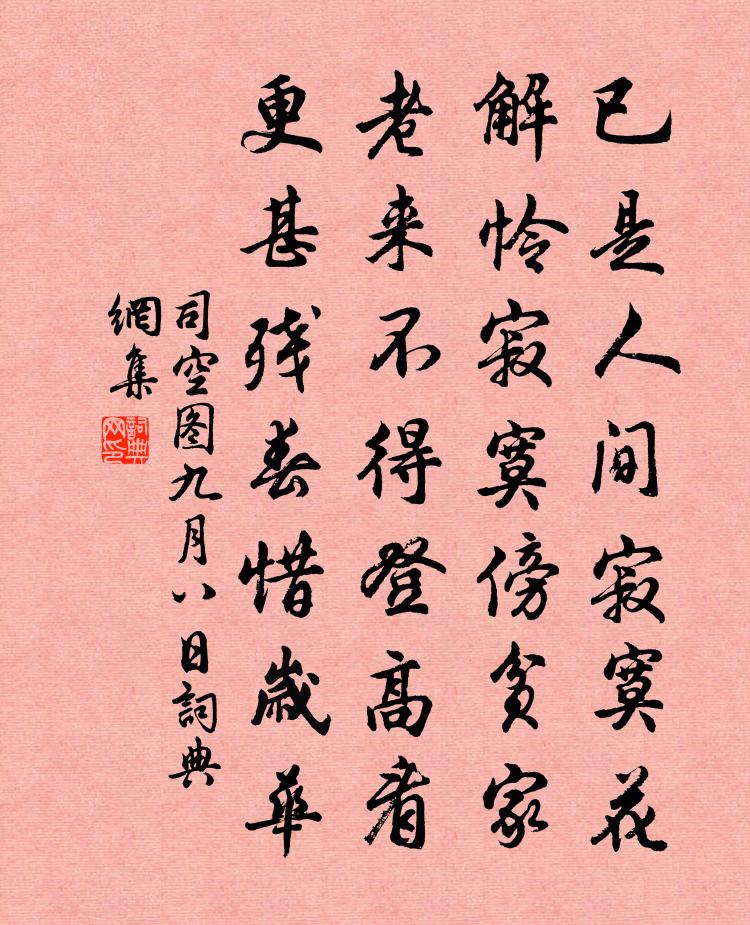 已是人间寂寞花
解怜寂寞傍贫家
老来不得登高看
更甚残春惜岁华
司空图九月八日詞典
網集
詞典網印